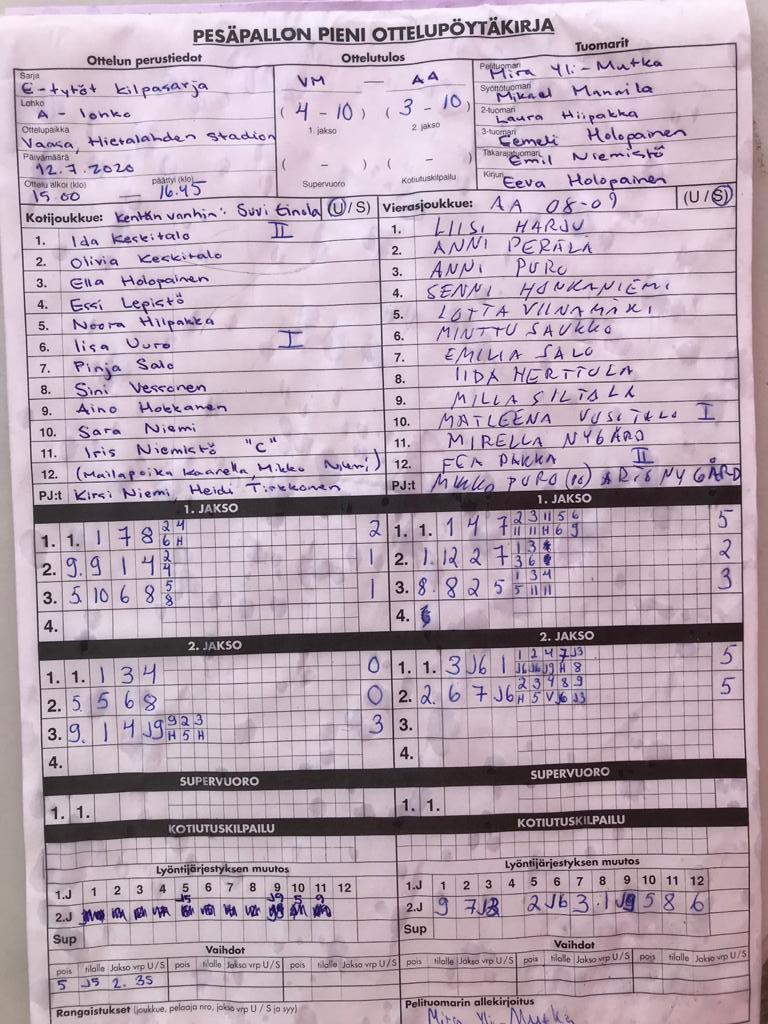 PESÄPALLON PIENI OTTELUPÖYTÄKIRJA
Ottelun perustiedot
Ottelutulos
Tuomarit
Sarja
E-tytöt kilpasarja
Lohko
A - lohko
Ottelupaikka
Vaasa, Hietalahden Stadion
Päivämäärä
12.7.2020
Ottelu alkoi (klo) päättyi (klo)
15.00 — 16.45
VM — AA
(4 - 10) (3 - 10)
1. jakso 2. jakso
( - ) ( - )
Supervuoro Kotiutuskilpailu
Pelituomari
Mira Yli-Mutka
Syöttötuomari
Mikael Mannila
2-tuomari
Laura Hiipakka
3-tuomari
Eemeli Holopainen
Takarajatuomari
Emil Niemistö
Kirjuri
Eeva Holopainen
Kotijoukkue: kentän vanhin: Suvi Einola (U/S)
1. Ida Keskitalo II
2. Olivia Keskitalo
3. Ella Holopainen
4. Essi Lepistö
5. Noora Hiipakka
6. Iisa Uuro I
7. Pinja Salo
8. Sini Vessonen
9. Aino Hokkanen
10. Sara Niemi
11. Iris Niemistö "C"
12. (Mailapoika Kaarella Mikko Niemi)
PJ:t Kirsi Niemi, Heidi Tirkkonen
Vierasjoukkue: AA 08-09 (U/S)
1. LIISI HARJU
2. ANNI PERÄLÄ
3. ANNI PURO
4. SENNI HONKANIEMI
5. LOTTA VIINAMÄKI
6. MINTTU SAUKKO
7. EMILIA SALO
8. IIDA HERTTULA
9. MILLA SILTALA
10. MATLEENA I
11. MIRELLA NYGÅRD
12. PAKKA II
PJ:t MIKKO PURO NYGÅRD
1. JAKSO
1. 1. 1 7 8 2 4 2
6 H
2. 9. 9 1 4 2 1
4
3. 5. 10 6 8 5 1
8
4.
1. JAKSO
1. 1. 1 4 7 2 3 11 5 6 5
11 11 H 6 9
2. 1. 12 2 7 1 3 2
3 6
3. 8. 8 2 5 1 3 4 3
5 11 11
4.
2. JAKSO
1. 1. 1 3 4 0
2. 5. 5 6 8 0
3. 9. 1 4 J9 9 2 3 3
H 5 H
4.
2. JAKSO
1. 1. 3 J6 1 1 2 4 7 J3 5
J6 J6 J9 H 8
2. 2. 6 7 J6 2 3 4 8 9 5
H 5 V J6 J3
3.
4.
SUPERVUORO
1. 1.
SUPERVUORO
1. 1.
KOTIUTUSKILPAILU
KOTIUTUSKILPAILU
Lyöntijärjestyksen muutos
1.J 1 2 3 4 5 6 7 8 9 10 11 12
J5 J9 5 9
2.J
Sup
Lyöntijärjestyksen muutos
1.J 1 2 3 4 5 6 7 8 9 10 11 12
2.J 9 7 2 J6 3 1 J9 5 8 6
Sup
Vaihdot
pois tilalle Jakso vrp U/S pois tilalle Jakso vrp U/S pois tilalle Jakso vrp U/S
5 J5 2. 3S
Vaihdot
pois tilalle Jakso vrp U/S pois tilalle Jakso vrp U/S pois tilalle Jakso vrp U/S
Rangaistukset (joukkue, pelaaja nro, jakso vrp U/S ja syy)
Pelituomarin allekirjoitus
Mira Yli-Mutka